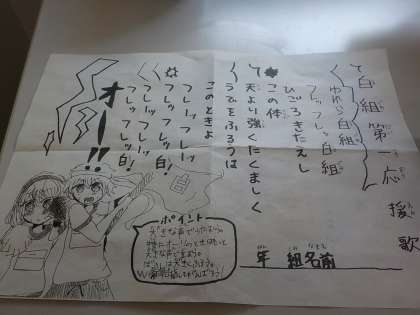 白組第一応援歌
ゆけゆけ白組
フレッフレッ白組
ひごろきたえし
この体
天より強くたくましく
うでをふるうは
このときよ
フレーッ フレーッ
フレッフレッ白!
フレーッ フレーッ
フレッフレッ白!
オー!!
白
ポイント
大きな声でうたおう。
大きな声で言おう。
年 組 名前